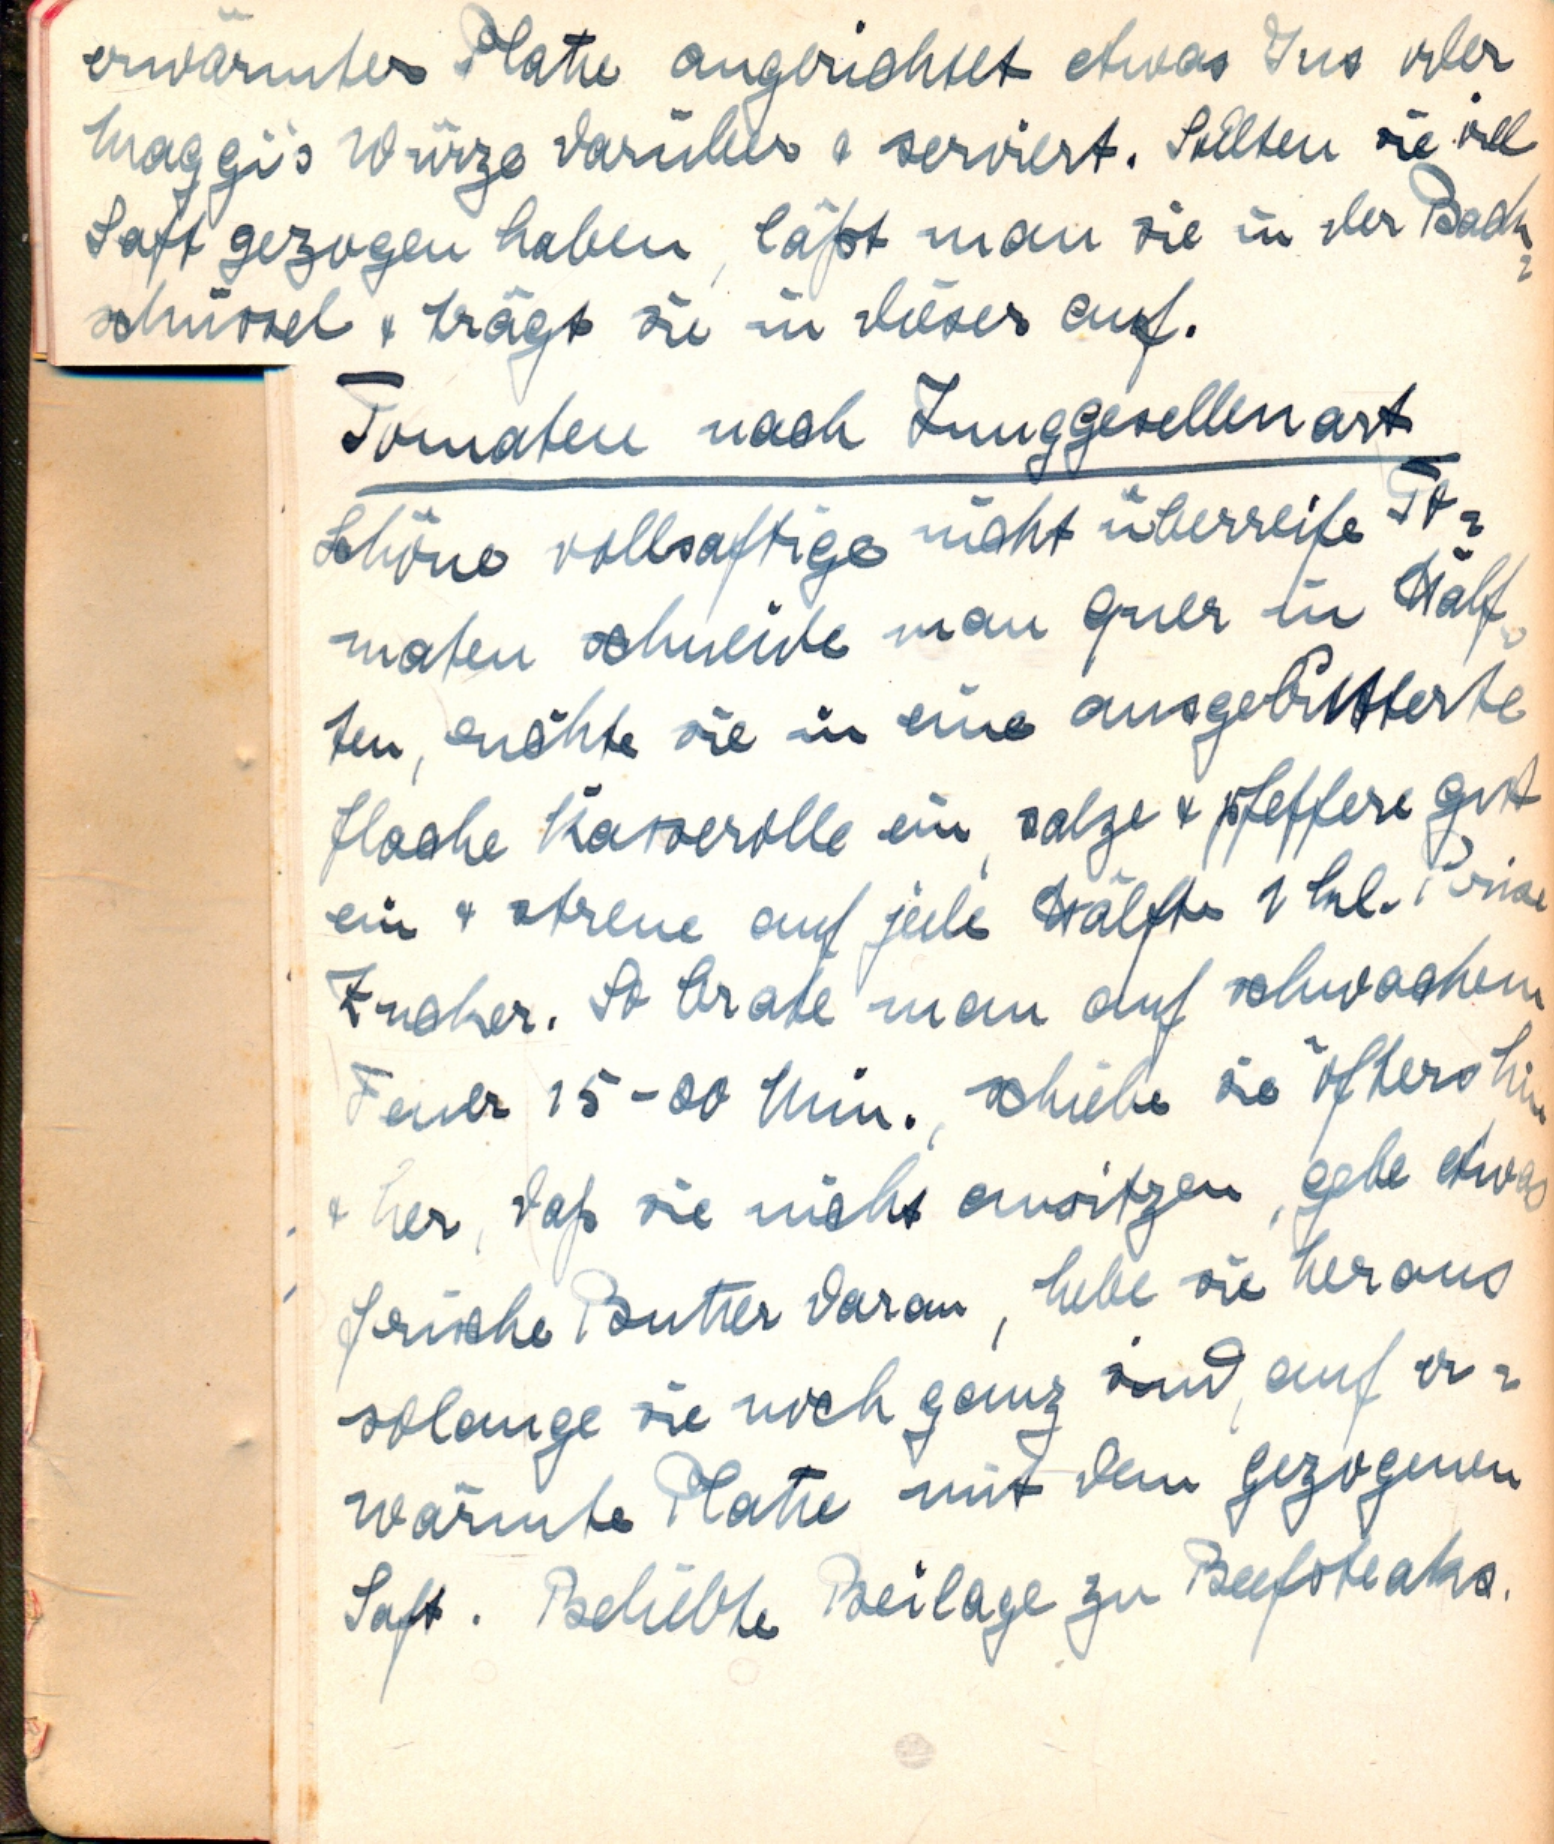 erwärmter Platte angerichtet etwas Jus oder
Maggi's Würze darüber & serviert. Sollten sie viel
Saft gezogen haben, läßt man sie in der Back-
schüssel & trägt sie in dieser auf.
Tomaten nach Junggesellenart
Schöne vollsaftige nicht überreife To-
maten schneide man quer in Hälf-
ten, richte sie in eine ausgebutterte
flache Kasserolle ein, salze & pfeffere gut
ein & streue auf jede Hälfte 1 kl. Prise
Zucker. So brate man auf schwachem
Feuer 15-20 Min., schiebe sie öfters hin
& her, daß sie nicht ansitzen, gebe etwas
frische Butter daran, hebe sie heraus
solange sie noch ganz sind, auf er-
wärmte Platte mit dem gezogenen
Saft. Beliebte Beilage zu Beefsteaks.